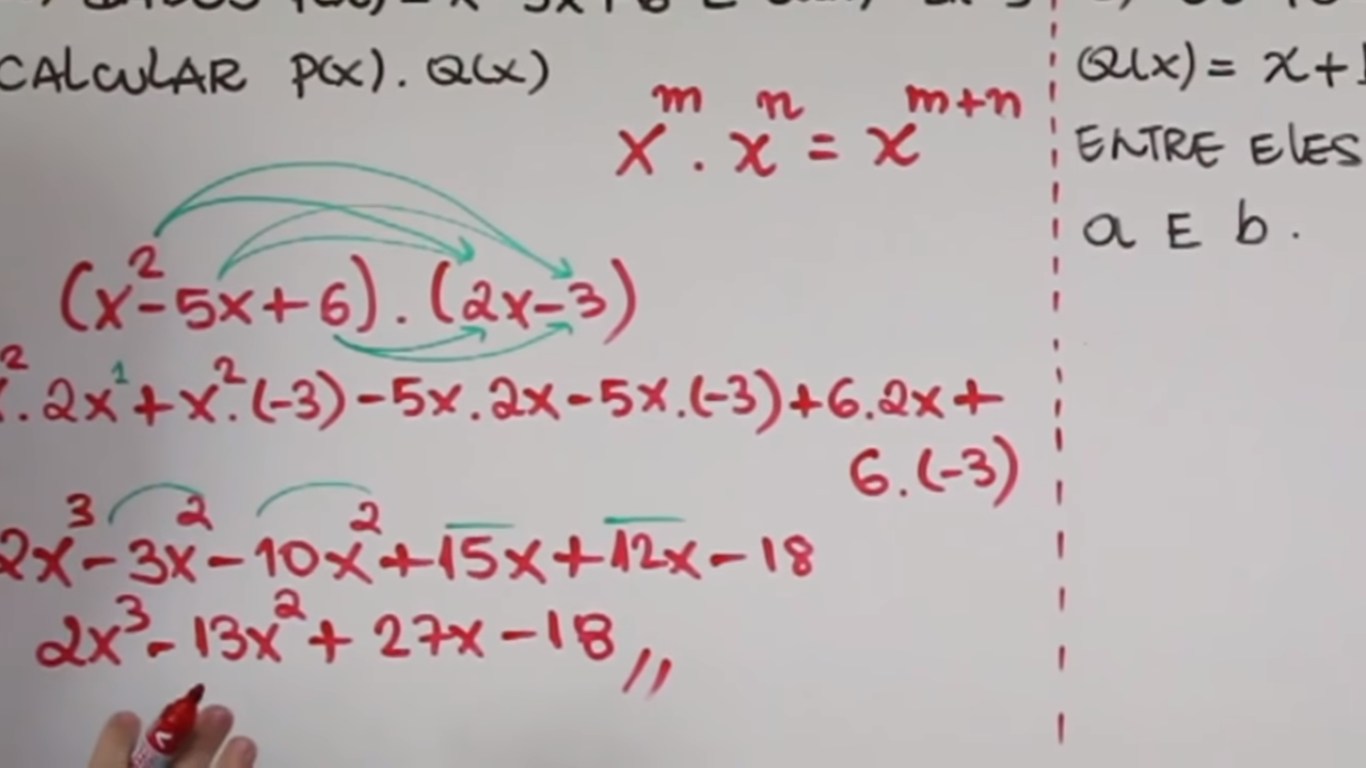 CALCULAR P(x). Q(x)
x^m . x^n = x^(m+n)
(x²-5x+6).(2x-3)
². 2x¹+x².(-3)-5x.2x-5x.(-3)+6.2x+
6.(-3)
2x³-3x²-10x²+15x+12x-18
2x³-13x²+27x-18
Q(x)= x+
ENTRE ELES
a E b.